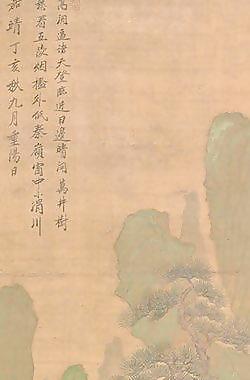 高閣逼諸天登臨近日邊晴開萬井樹
愁看五陵烟檻外低秦嶺窗中小渭川
嘉靖丁亥秋九月重陽日